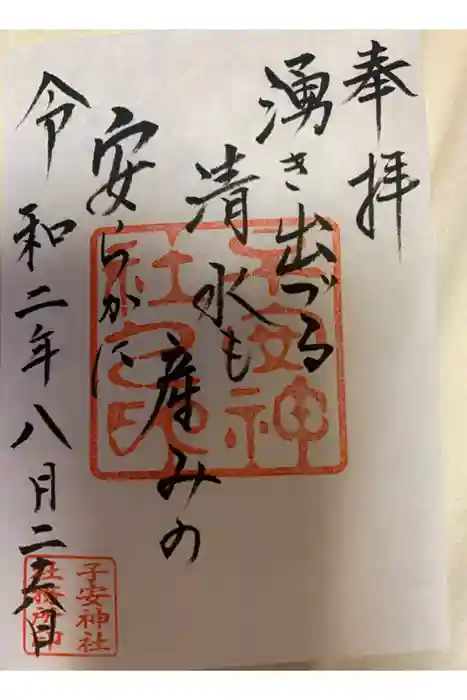 奉拝
湧き出づる
清水も
産みの
安らかに
令和二年八月二六日
子安神
社印
子安神社
社務所印